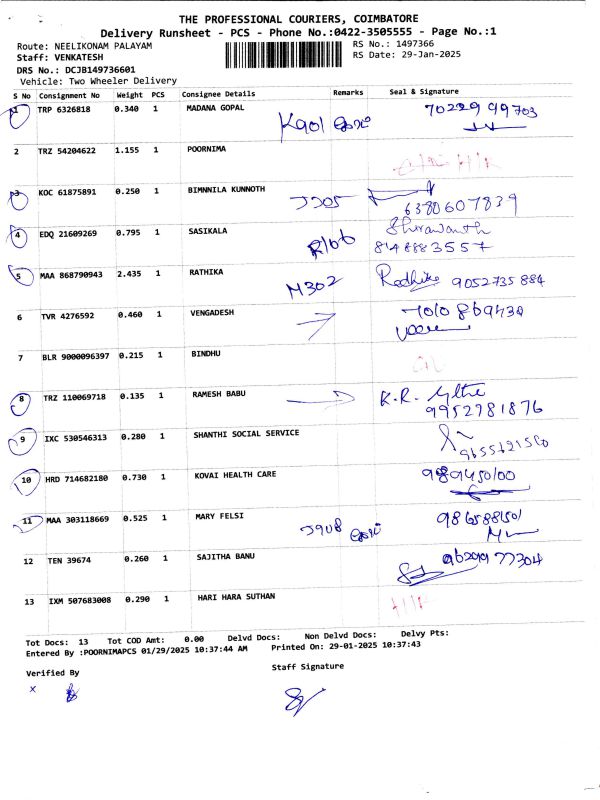 THE PROFESSIONAL COURIERS, COIMBATORE
Delivery Runsheet - PCS - Phone No.:0422-3505555 - Page No.:1
Route: NEELIKONAM PALAYAM RS No.: 1497366
Staff: VENKATESH RS Date: 29-Jan-2025
DRS No.: DCJB149736601
Vehicle: Two Wheeler Delivery
S No Consignment No Weight PCS Consignee Details Remarks Seal & Signature
1 TRP 6326818 0.340 1 MADANA GOPAL 70229 49703
2 TRZ 54204622 1.155 1 POORNIMA
3 KOC 61875891 0.250 1 BIMNNILA KUNNOTH J205 6380607839
4 EDQ 21609269 0.795 1 SASIKALA 8148883557
5 MAA 868790943 2.435 1 RATHIKA M302 Radhika 9052735884
6 TVR 4276592 0.460 1 VENGADESH
7 BLR 9000096397 0.215 1 BINDHU
8 TRZ 110069718 0.135 1 RAMESH BABU K.R. 9952781876
9 IXC 530546313 0.280 1 SHANTHI SOCIAL SERVICE
10 HRD 714682180 0.730 1 KOVAI HEALTH CARE
11 MAA 303118669 0.525 1 MARY FELSI J908
12 TEN 39674 0.260 1 SAJITHA BANU
13 IXM 507683008 0.290 1 HARI HARA SUTHAN
Tot Docs: 13 Tot COD Amt: 0.00 Delvd Docs: Non Delvd Docs: Delvy Pts:
Entered By :POORNIMAPCS 01/29/2025 10:37:44 AM Printed On: 29-01-2025 10:37:43
Verified By Staff Signature
x